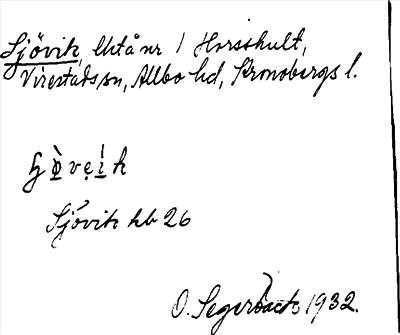 Sjövik, utå nr 1 Horsshult,
Virestads sn, Allbo hd, Kronobergs l.
Sjövik hb 26
O. Segerbäck 1932.